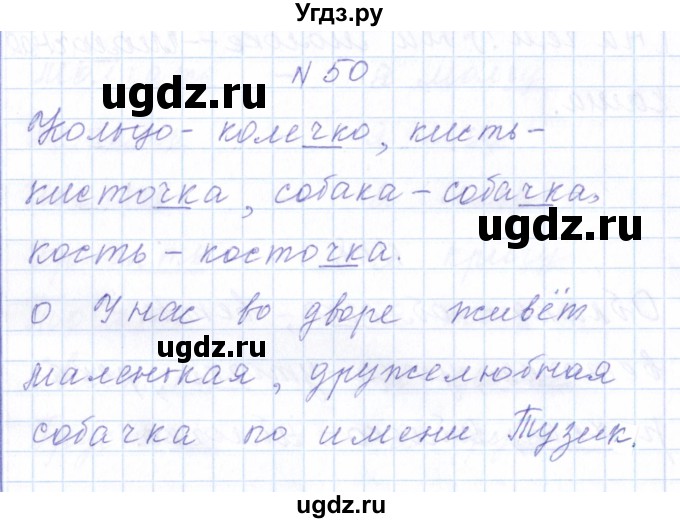 Угдз.ру
N 50
ugdz.ru
Кольцо - колечко, кисть -
кисточка, собака - собачка,
ugdz.ru
кость - косточка.
о У нас во дворе живёт
ugdz.ru
маленькая, дружелюбная
собачка по имени Тузик.
ugdz.ru